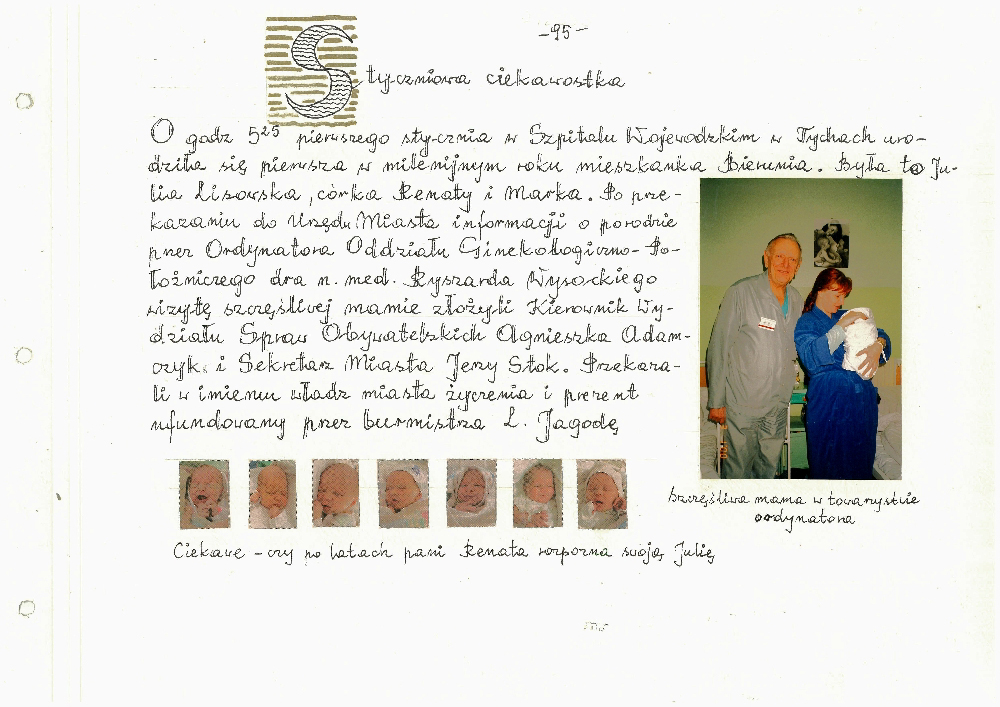 -95-
Styczniowa ciekawostka
O godz 5²⁵ pierwszego stycznia w Szpitalu Wojewódzkim w Tychach uro-
dziła się pierwsza w milenijnym roku mieszkanka Bierunia. Była to Ju-
lia Lisowska, córka Renaty i Marka. Po prze-
kazaniu do Urzędu Miasta informacji o porodzie
przez Ordynatora Oddziału Ginekologiczno-Po-
łożniczego dra n. med. Ryszarda Wysockiego
wizytę szczęśliwej mamie złożyli Kierownik Wy-
działu Spraw Obywatelskich Agnieszka Adam-
czyk i Sekretarz Miasta Jerzy Stok. Przekaza-
li w imieniu władz miasta życzenia i prezent
ufundowany przez burmistrza L. Jagodę
Szczęśliwa mama w towarzystwie
ordynatora
Ciekawe - czy po latach pani Renata rozpozna swoją Julię